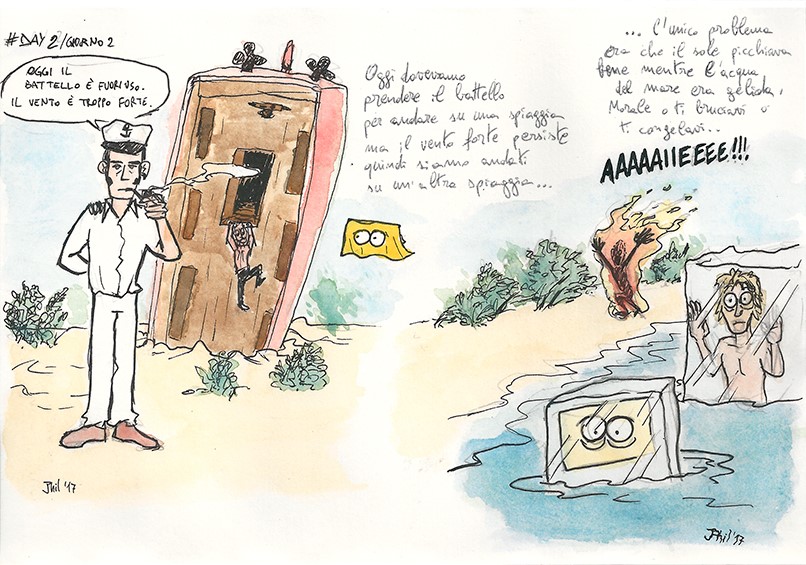 #DAY 2/GIORNO 2
OGGI IL
BATTELLO È FUORI USO.
IL VENTO È TROPPO FORTE.
Oggi dovevamo
prendere il battello
per andare su una spiaggia
ma il vento forte persiste
quindi siamo andati
su un'altra spiaggia...
... l'unico problema
era che il sole picchiava
bene mentre l'acqua
del mare era gelida,
Morale o ti bruciavi o
ti congelavi..
AAAAAIIEEEE!!!
Phil '17
Phil '17